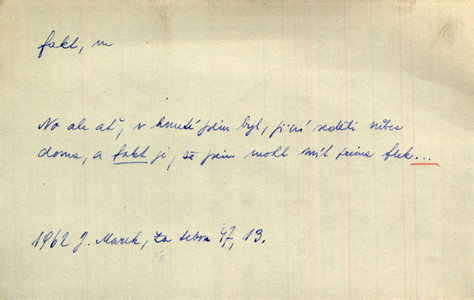 fakt, m
No ale ať, v hnutí jsem byl, jiní seděli
doma, a fakt je, že jsem mohl mít prima flek...
1962 J. Marek, Za tebou 47, 13.